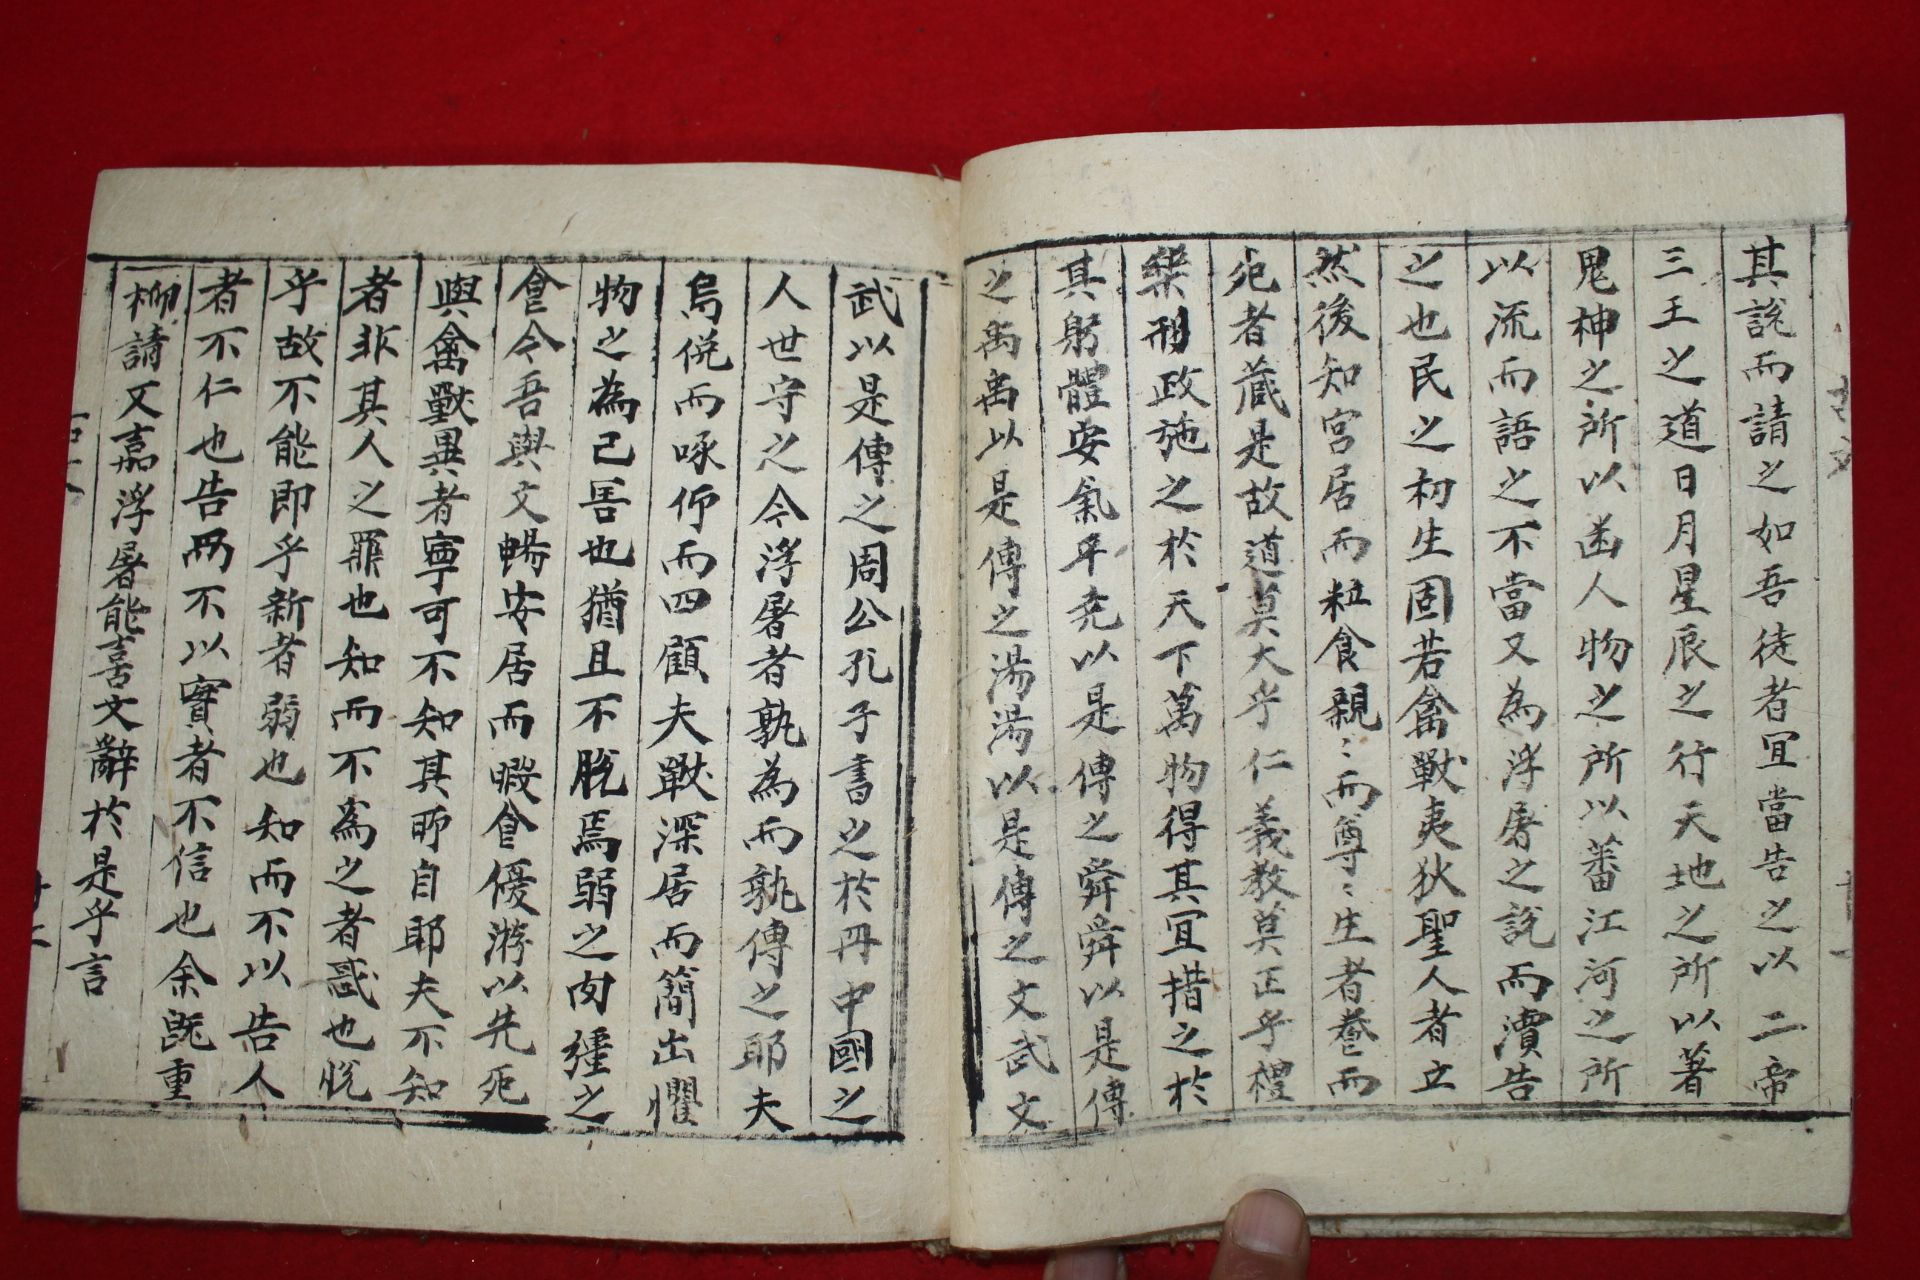 其說而請之如吾徒者宜當告之以二帝
三王之道日月星辰之行天地之所以著
鬼神之所以幽人物之所以蕃江河之所
以流而語之不當又為浮屠之說而瀆告
之也民之初生固若禽獸夷狄聖人者立
然後知宮居而粒食親〻而尊〻生者養而
死者藏是故道莫大乎仁義教莫正乎禮
樂刑政施之於天下萬物得其宜措之於
其躬體安氣平堯以是傳之舜舜以是傳
之禹禹以是傳之湯湯以是傳之文武文
武以是傳之周公孔子書之於冊中國之
人世守之今浮屠者孰為而孰傳之耶夫
鳥俛而啄仰而四顧夫獸深居而簡出懼
物之為己害也猶且不脫焉弱之肉彊之
食今吾與文暢安居而暇食優游以先死
與禽獸異者寧可不知其所自耶夫不知
者非其人之罪也知而不為之者惑也悅
乎故不能即乎新者弱也知而不以告人
者不仁也告而不以實者不信也余既重
柳請又嘉浮屠能喜文辭於是乎言